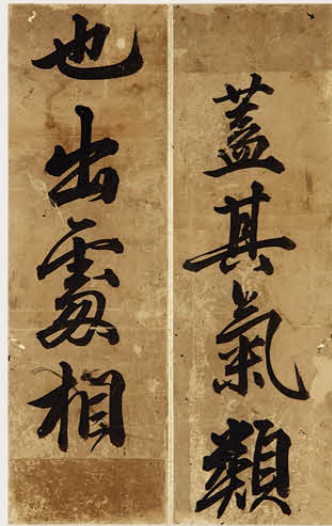 蓋其氣類
也出處相